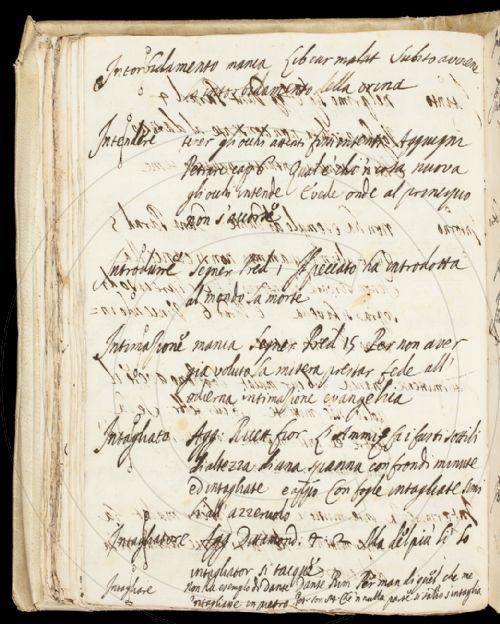 Intorbidamento manca Lib cur malat Subito avvene
lo intorbidamento della orina
Intendere tener gli occhi attenti fissi intenti Aggiugni
Petrar cap 6 Qual è chi 'n cosa nuova
gli occhi intende E vede onde al principio
non s'accorse
Introdurre Segner Pred 1 Il peccato ha introdotta
al mondo la morte
Intimazione manca Segner Pred 15 Per non aver
già voluto la misera prestar fede all'
odierna intimazione evangelica
Intagliato Agg: Ricett fior fa i fusti sottili
d'altezza di una spanna con frondi minute
ed intagliate e Con foglie intagliate simi
li all' azzeruolo
Intagliatore Agg 2 Ma del più li lo
intagliator si tacque
Intagliare Non ha esempio di Dante Dante Rim Per man di quel che me
'ntagliasse in pietra